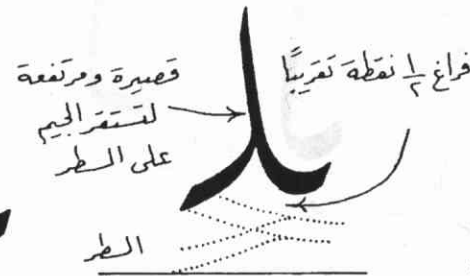 فراغ ١/٢ نقطة تقريبًا
قصيرة ومرتفعة
لتستقر الجيم
على السطر
السطر